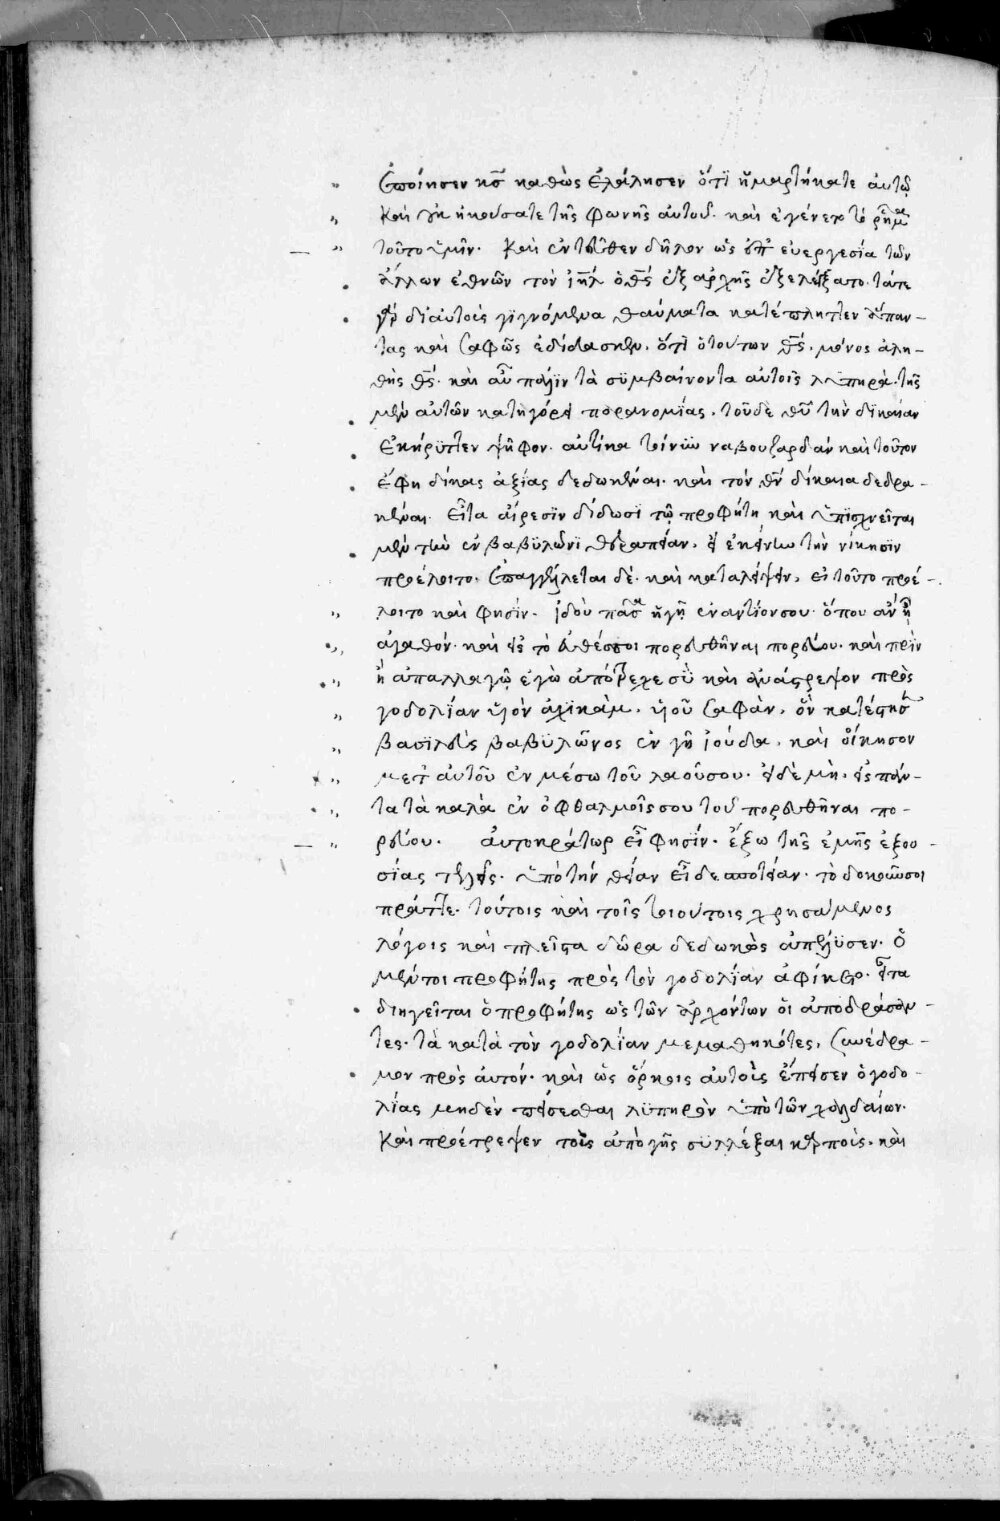 ἐποίησεν κ̅ς̅ καθὼς ἐλάλησεν ὅτϊ ἡμαρτήκατε αὐτῷ
καὶ οὐκ ἠκούσατε τῆς φωνῆς αὐτοῦ. καὶ ἐγένετο τὸ ῥῆμα
τοῦτο ὑμῖν. καὶ ἐντεῦθεν δῆλον ὡς ἐπ' εὐεργεσία τῶν
ἄλλων ἐθνῶν τὸν ἰη̅λ ὁ θ̅ς̅ ἐξ ἀρχῆς ἐξελέξατο. τά τε
γὰρ δι αὐτοὺς γϊγνόμενα θαύματα κατέπληττεν ἅπαν-
τας καὶ σαφῶς ἐδίδασκεν, ὅτϊ ὁ τούτων θ̅ς̅. μόνος ἀλη-
θὴς θ̅ς̅. καὶ αὖ πάλϊν τὰ σϋμβαίνοντα αὐτοῖς λυπηρὰ. τῆς
μὲν αὐτῶν κατηγόρει παρανομίας. τοῦ δὲ θ̅υ̅ τὴν δϊκαίαν
ἐκήρϋττεν ψῆφον. αὐτίκα τοίνυν ναβουζαρδὰν καὶ τοῦτον
ἔφη δίκας ἀξίας δεδωκέναι. καὶ τὸν θ̅ν̅ δίκαια δεδρα-
κέναι. εἶτα αἵρεσϊν δίδωσϊ τῷ προφήτη καὶ ὑπϊσχνεῖται
μὲν τὴν ἐν βαβϋλῶνϊ θεραπείαν, εἰ ἐκείνην τὴν οἴκησϊν
προέλοιτο. ἐπαγγέλλεται δὲ. καὶ καταλείψειν, εἰ τοῦτο προέ-
λοιτο καὶ φησίν. ἰδοὺ πᾶσα ἡ γῆ ἐναντίον σου. ὅπου ἂν ᾖ
ἀγαθόν. καὶ εἰς τὸ ἀρέσκοι πορευθῆναι πορεύου. καὶ πρὶν
ἢ ἀπαλλαγῶ ἐγὼ ἀπότρεχε σὺ καὶ ἀνάστρεψον πρὸς
γοδολίαν υἱὸν ἀχϊκὰμ. υἱοῦ σαφὰν, ὃν κατέστησε
βασϊλεὺς βαβϋλῶνος ἐν γῆ ἰούδα. καὶ οἴκησον
μετ' αὐτοῦ ἐν μέσω τοῦ λαοῦ σου. εἰ δὲ μὴ. εἰς πάν-
τα τὰ καλὰ ἐν ὀφθαλμοῖς σου τοῦ πορευθῆναι πο-
ρεύου. αὐτοκράτωρ εἶ φησϊν. ἔξω τῆς ἐμῆς ἐξου-
σίας τελεῖς. ὑπὸ τὴν θείαν εἶ δεσποτείαν. τὸ δοκοῦν σοι
πρᾶττε. τούτοις καὶ τοῖς τοιούτοις χρησάμενος
λόγοις καὶ πλεῖστα δῶρα δεδωκὼς ἀπέλϋσεν. ὁ
μέντοι προφήτης πρὸς τὸν γοδολίαν ἀφίκετο. εἶτα
διηγεῖται ὁ προφήτης ὡς τῶν ἀρχόντων οἱ ἀποδράσαν-
τες. τὰ κατὰ τὸν γοδολίαν μεμαθηκότες, συνέδρα-
μον πρὸς αὐτόν. καὶ ὡς ὅρκοις αὐτοὺς ἔπεισεν ὁ γοδο-
λίας μηδὲν πείσεσθαι λϋπηρὸν ὑπὸ τῶν χαλδαίων.
καὶ προέτρεψεν τοὺς ἀπὸ γῆς σϋλλέξαι καρποὺς. καὶ